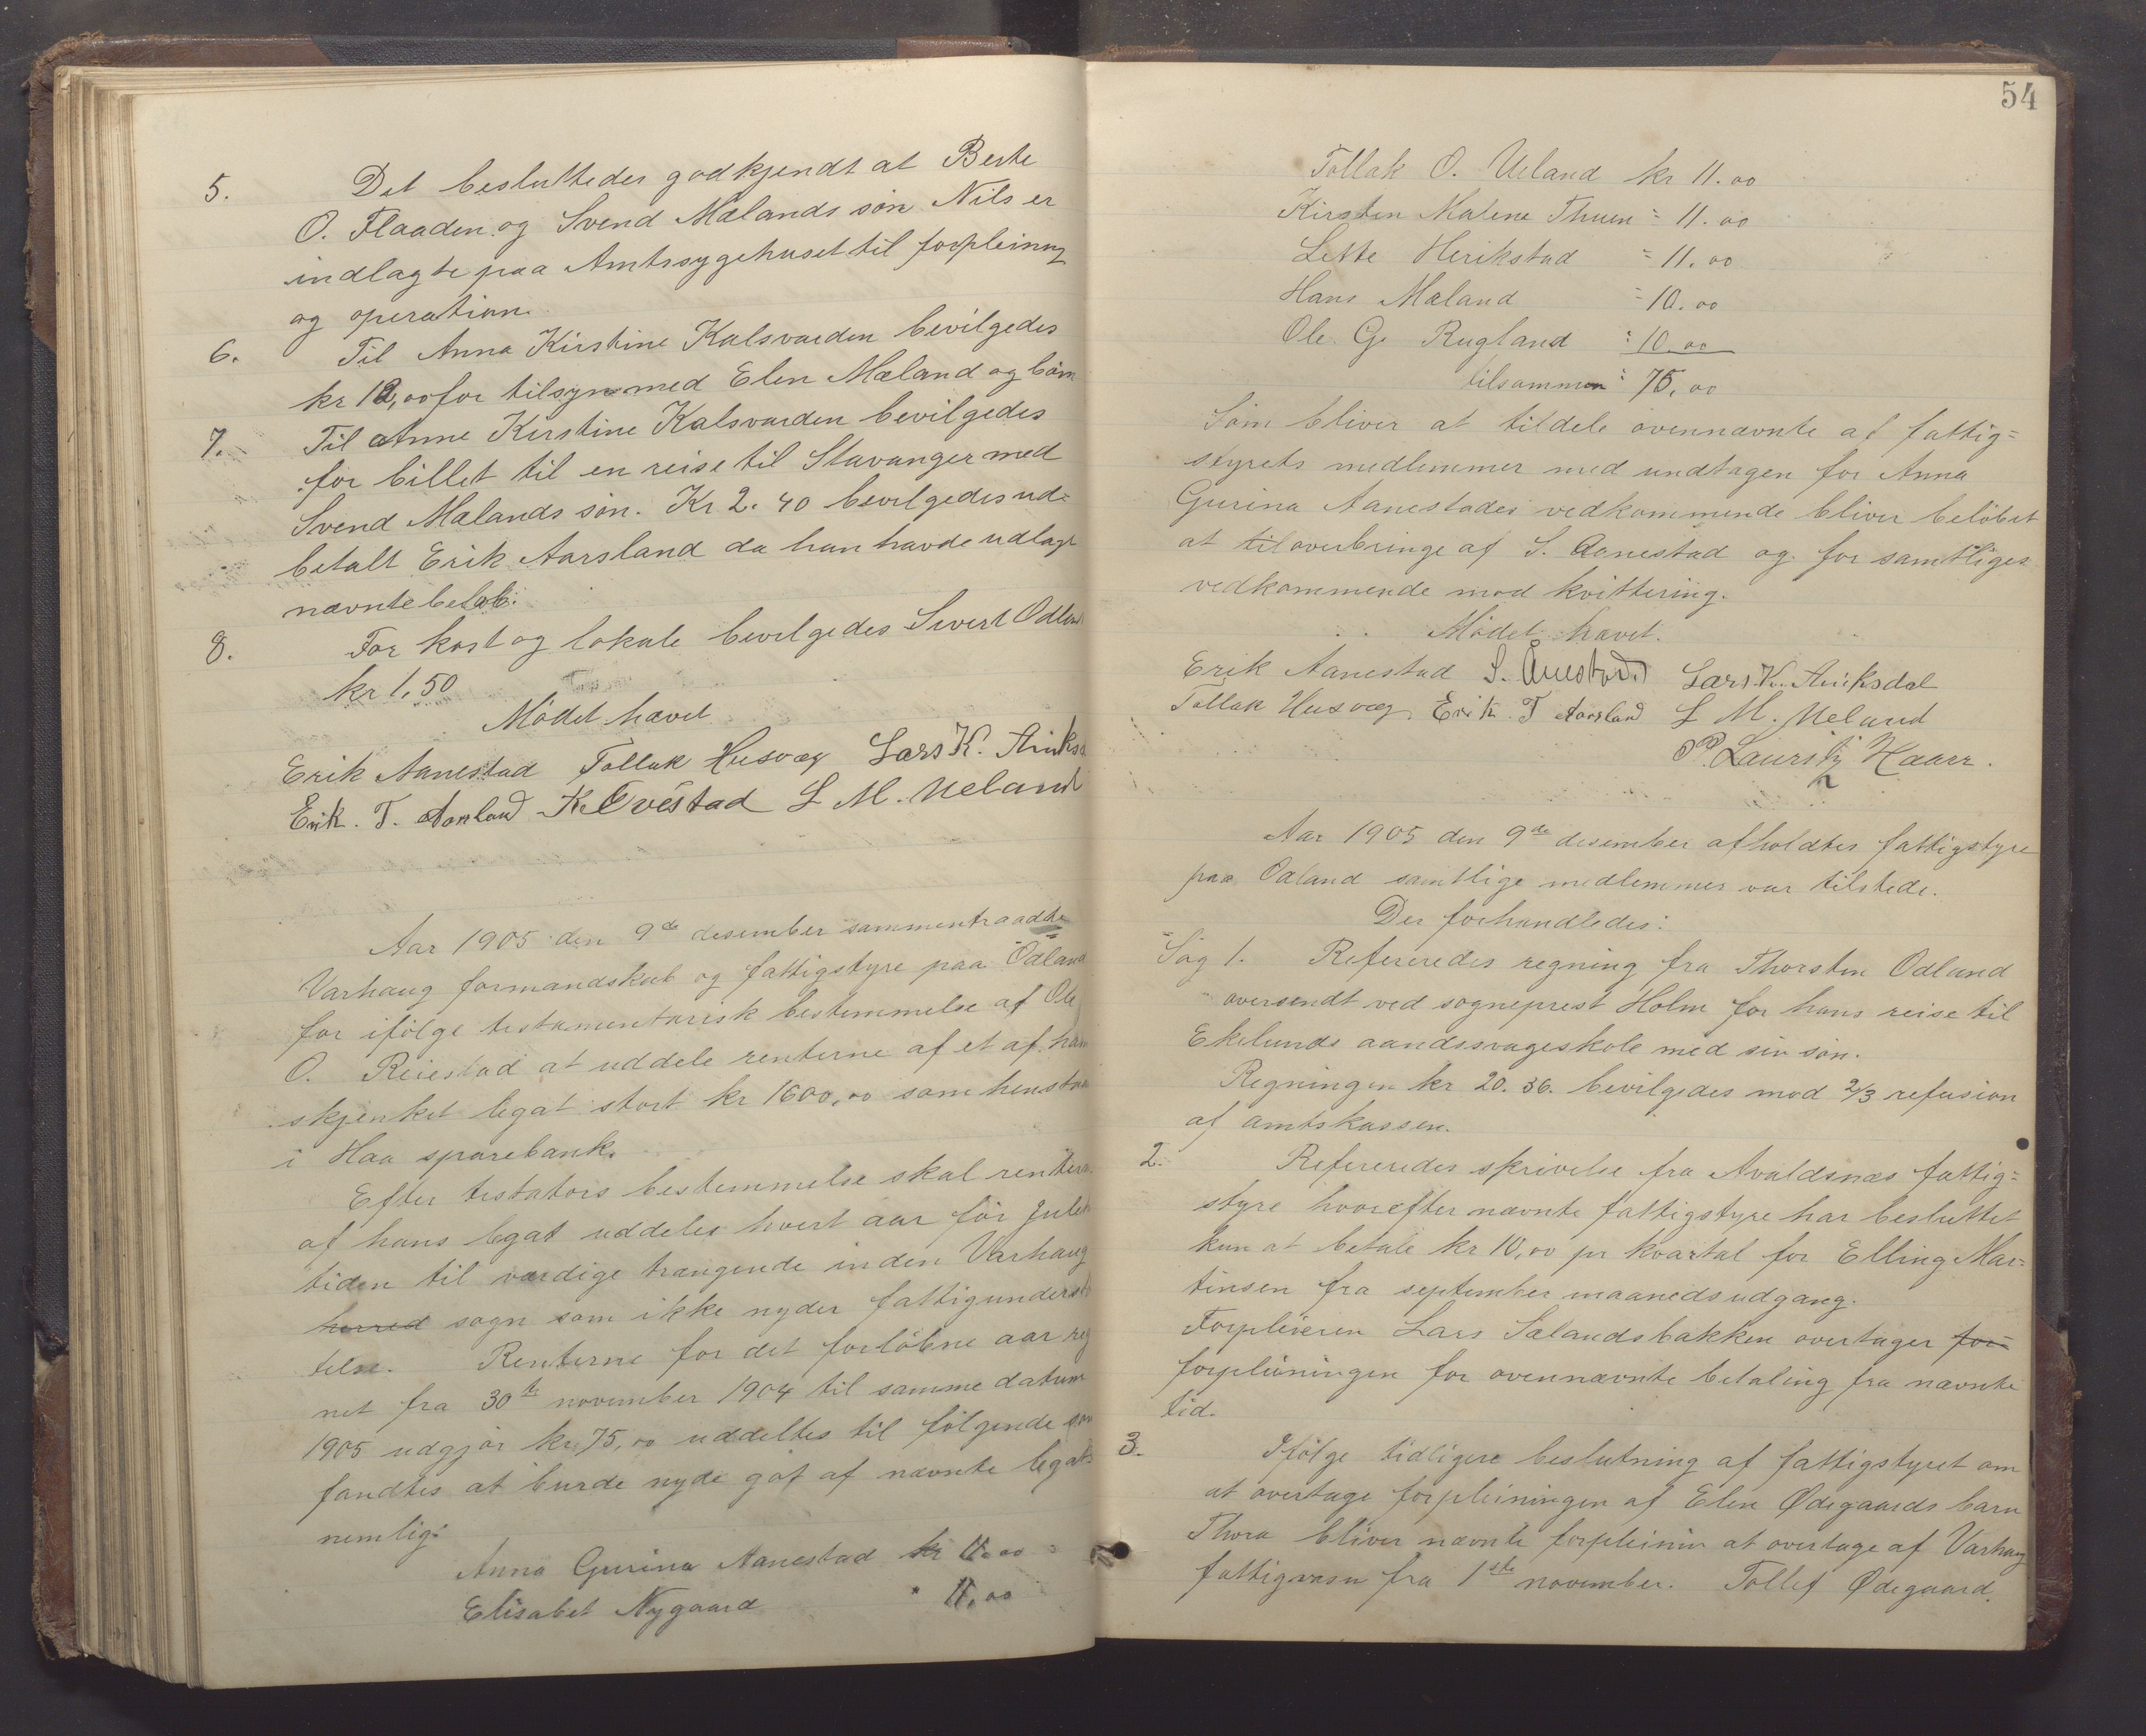 5. Det besluttedes godkjendt at Berte
O. Flaaden og Svend Mælands søn Nils er
indlagte paa Amtssygehuset til forpleining
og operation.
6. Til Anna Kirstine Kalsvarden bevilgedes
kr 12,00 for tilsyn med Elen Mæland og børn
7. Til Anne Kirstine Kalsvarden bevilgedes
for billet til en reise til Stavanger med
Svend Mælands søn. Kr 2.40 bevilgedes ud-
betalt Erik Aarsland da han havde udlagt
nævnte beløb.
8. For kost og lokale bevilgedes Sivert Odland
kr 1,50
Mødet hævet
Erik Aanestad Tollak Husvæg Lars K. Auksd
Erik. T. Aarsland K. Evestad L M. Ueland
Aar 1905 den 9de desember sammentraadte
Varhaug formandskab og fattigstyre paa Odland
for ifølge testamentarisk bestemmelse af Ole
O. Reiestad at uddele renterne af et af ham
skjenket legat stort kr 1600,00 som henstaar
i Haa sparebank.
Efter testators bestemmelse skal renterne
af hans legat uddeles hvert aar før Jule
tiden til værdige trængende inden Varhaug
herred sogn som ikke nyder fattigunderstø
telse. Renterne for det forløbne aar reg
net fra 30te november 1904 til samme datum
1905 udgjør kr 75,00 uddeltes til følgende som
fandtes at burde nyde godt af nævnte legat
nemlig:
Anna Gurina Aanestad kr 11.00
Elisabet Nygaard " 11,00
54
Tollak O. Ueland kr 11.00
Kirsten Malene Thuen = 11.00
Lette Herikstad = 11.00
Hans Mæland = 10.00
Ole G. Rugland = 10.00
tilsammen = 75,00
Som bliver at tildele ovennævnte af fattig=
styrets medlemmer med undtagen for Anna
Gurina Aanestades vedkommende bliver beløbet
at til overbringe af S. Aanestad og for samtliges
vedkommende mod kvittering.
Mødet hævet.
Erik Aanestad S. Ånestad Lars K. Auksdal
Tollak Husvæg Erik. T Aarsland L M. Ueland
P. Lauritz Haarr.
Aar 1905 den 9de desember afholdtes fattigstyre
paa Odland samtlige medlemmer var tilstede.
Der forhandledes:
Sag 1. Refereredes regning fra Thorsten Odland
oversendt ved sogneprest Holm for hans reise til
Ekelunds aandssvageskole med sin søn.
Regningen kr 20.36. bevilgedes mod 2/3 refusion
af amtskassen.
2. Refereredes skrivelse fra Avaldsnæs fattig=
styre hvorefter nævnte fattigstyre har besluttet
kun at betale kr 10,00 pr kvartal for Elling Mar=
tinsen fra september maaneds udgang.
Forpleieren Lars Sælandsbakken overtager for=
forpleiningen for ovennævnte betaling fra nævnte
tid.
3. Ifølge tidligere beslutning af fattigstyret om
at overtage forpleiningen af Elen Ødegaards barn
Thora bliver nævnte forpleinin at overtage af Varhaug
fattigvæsn fra 1ste november. Tollef Ødegaard.